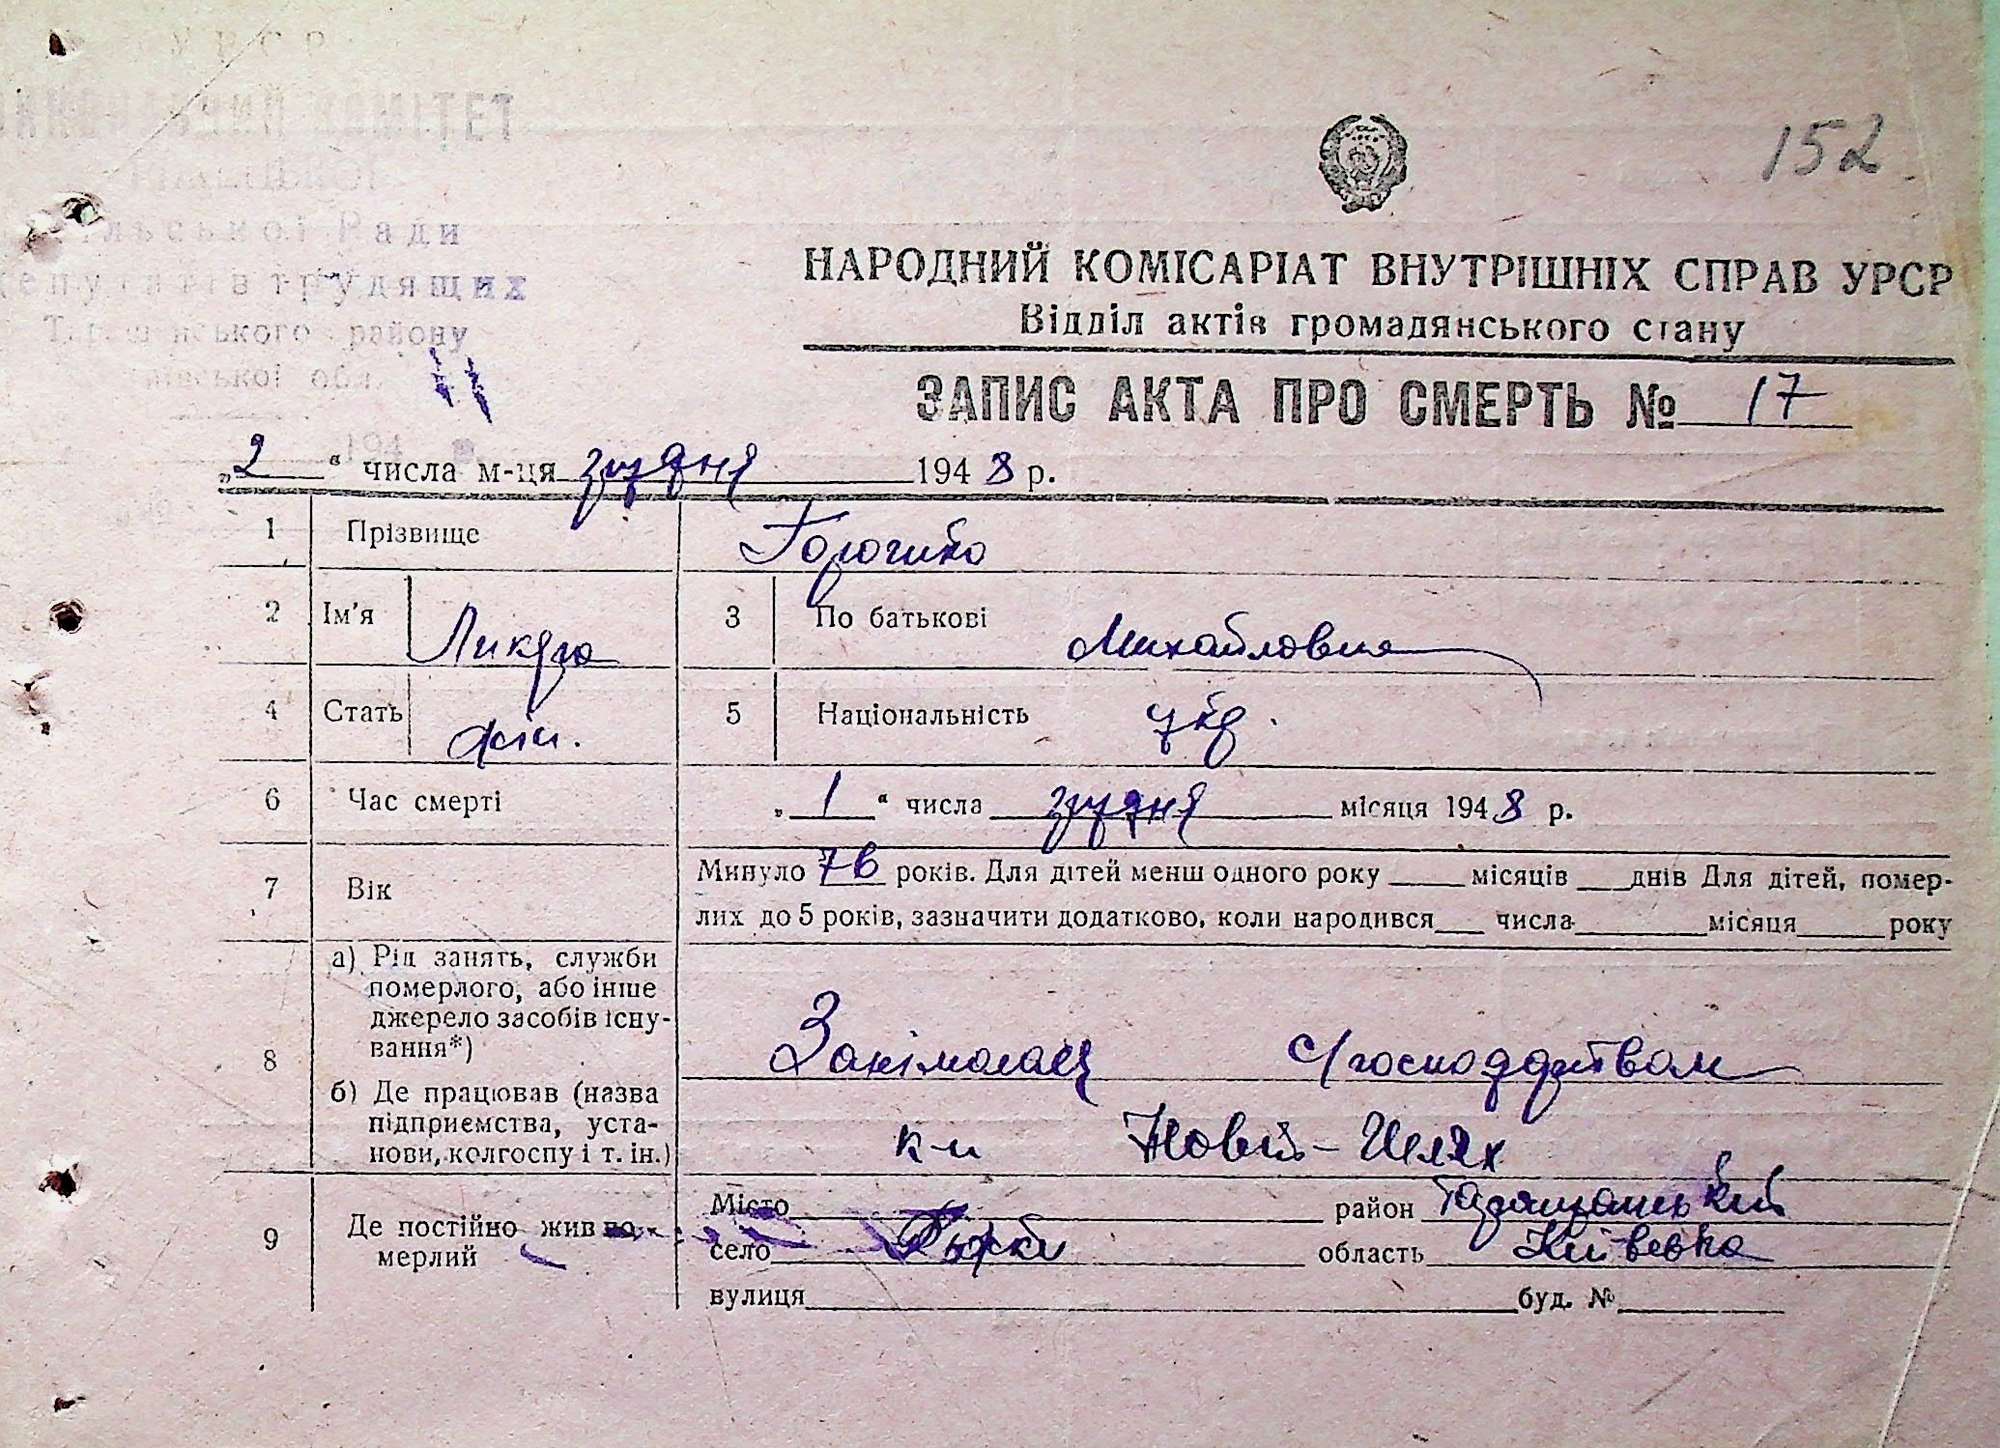 УРСР
ВИКОНАВЧИЙ КОМІТЕТ
сільської Ради
депутатів трудящих
Таращанського району
Київської обл.
194 р.
152
НАРОДНИЙ КОМІСАРІАТ ВНУТРІШНІХ СПРАВ УРСР
Відділ актів громадянського стану
ЗАПИС АКТА ПРО СМЕРТЬ № 17
„2“ числа м-ця грудня 1948 р.
1 Прізвище
2 Ім'я Ликера 3 По батькові Михайловна
4 Стать жін. 5 Національність укр.
6 Час смерті „1“ числа грудня місяця 1948 р.
7 Вік Минуло 76 років. Для дітей менш одного року ___ місяців ___ днів Для дітей, помер-
лих до 5 років, зазначити додатково, коли народився ___ числа ___ місяця ___ року
8 а) Рід занять, служби
померлого, або інше
джерело засобів існу-
вання*)
Занімалась с/господарством
б) Де працював (назва
підприємства, уста-
нови, колгоспу і т. ін.)
к-п Новий-Шлях
9 Де постійно жив по-
мерлий
Місто район Таращанський
село область Київська
вулиця буд. №